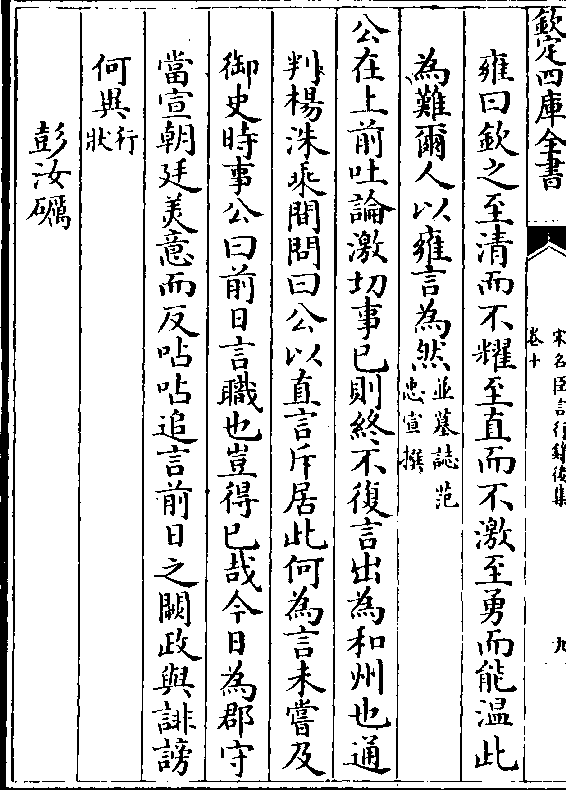 欽定四庫全書
宋名臣言行錄後集
卷十
九
雍曰欽之至清而不耀至直而不激至勇而能温此
為難爾人以雍言為然並墓誌范忠宣撰
公在上前吐論激切事已則終不復言出為和州也通
判楊洙乘間問曰公以直言斥居此何為言未嘗及
御史時事公曰前日言職也豈得已哉今日為郡守
當宣朝廷美意而反呫呫追言前日之闕政與誹謗
何異行狀
彭汝礪